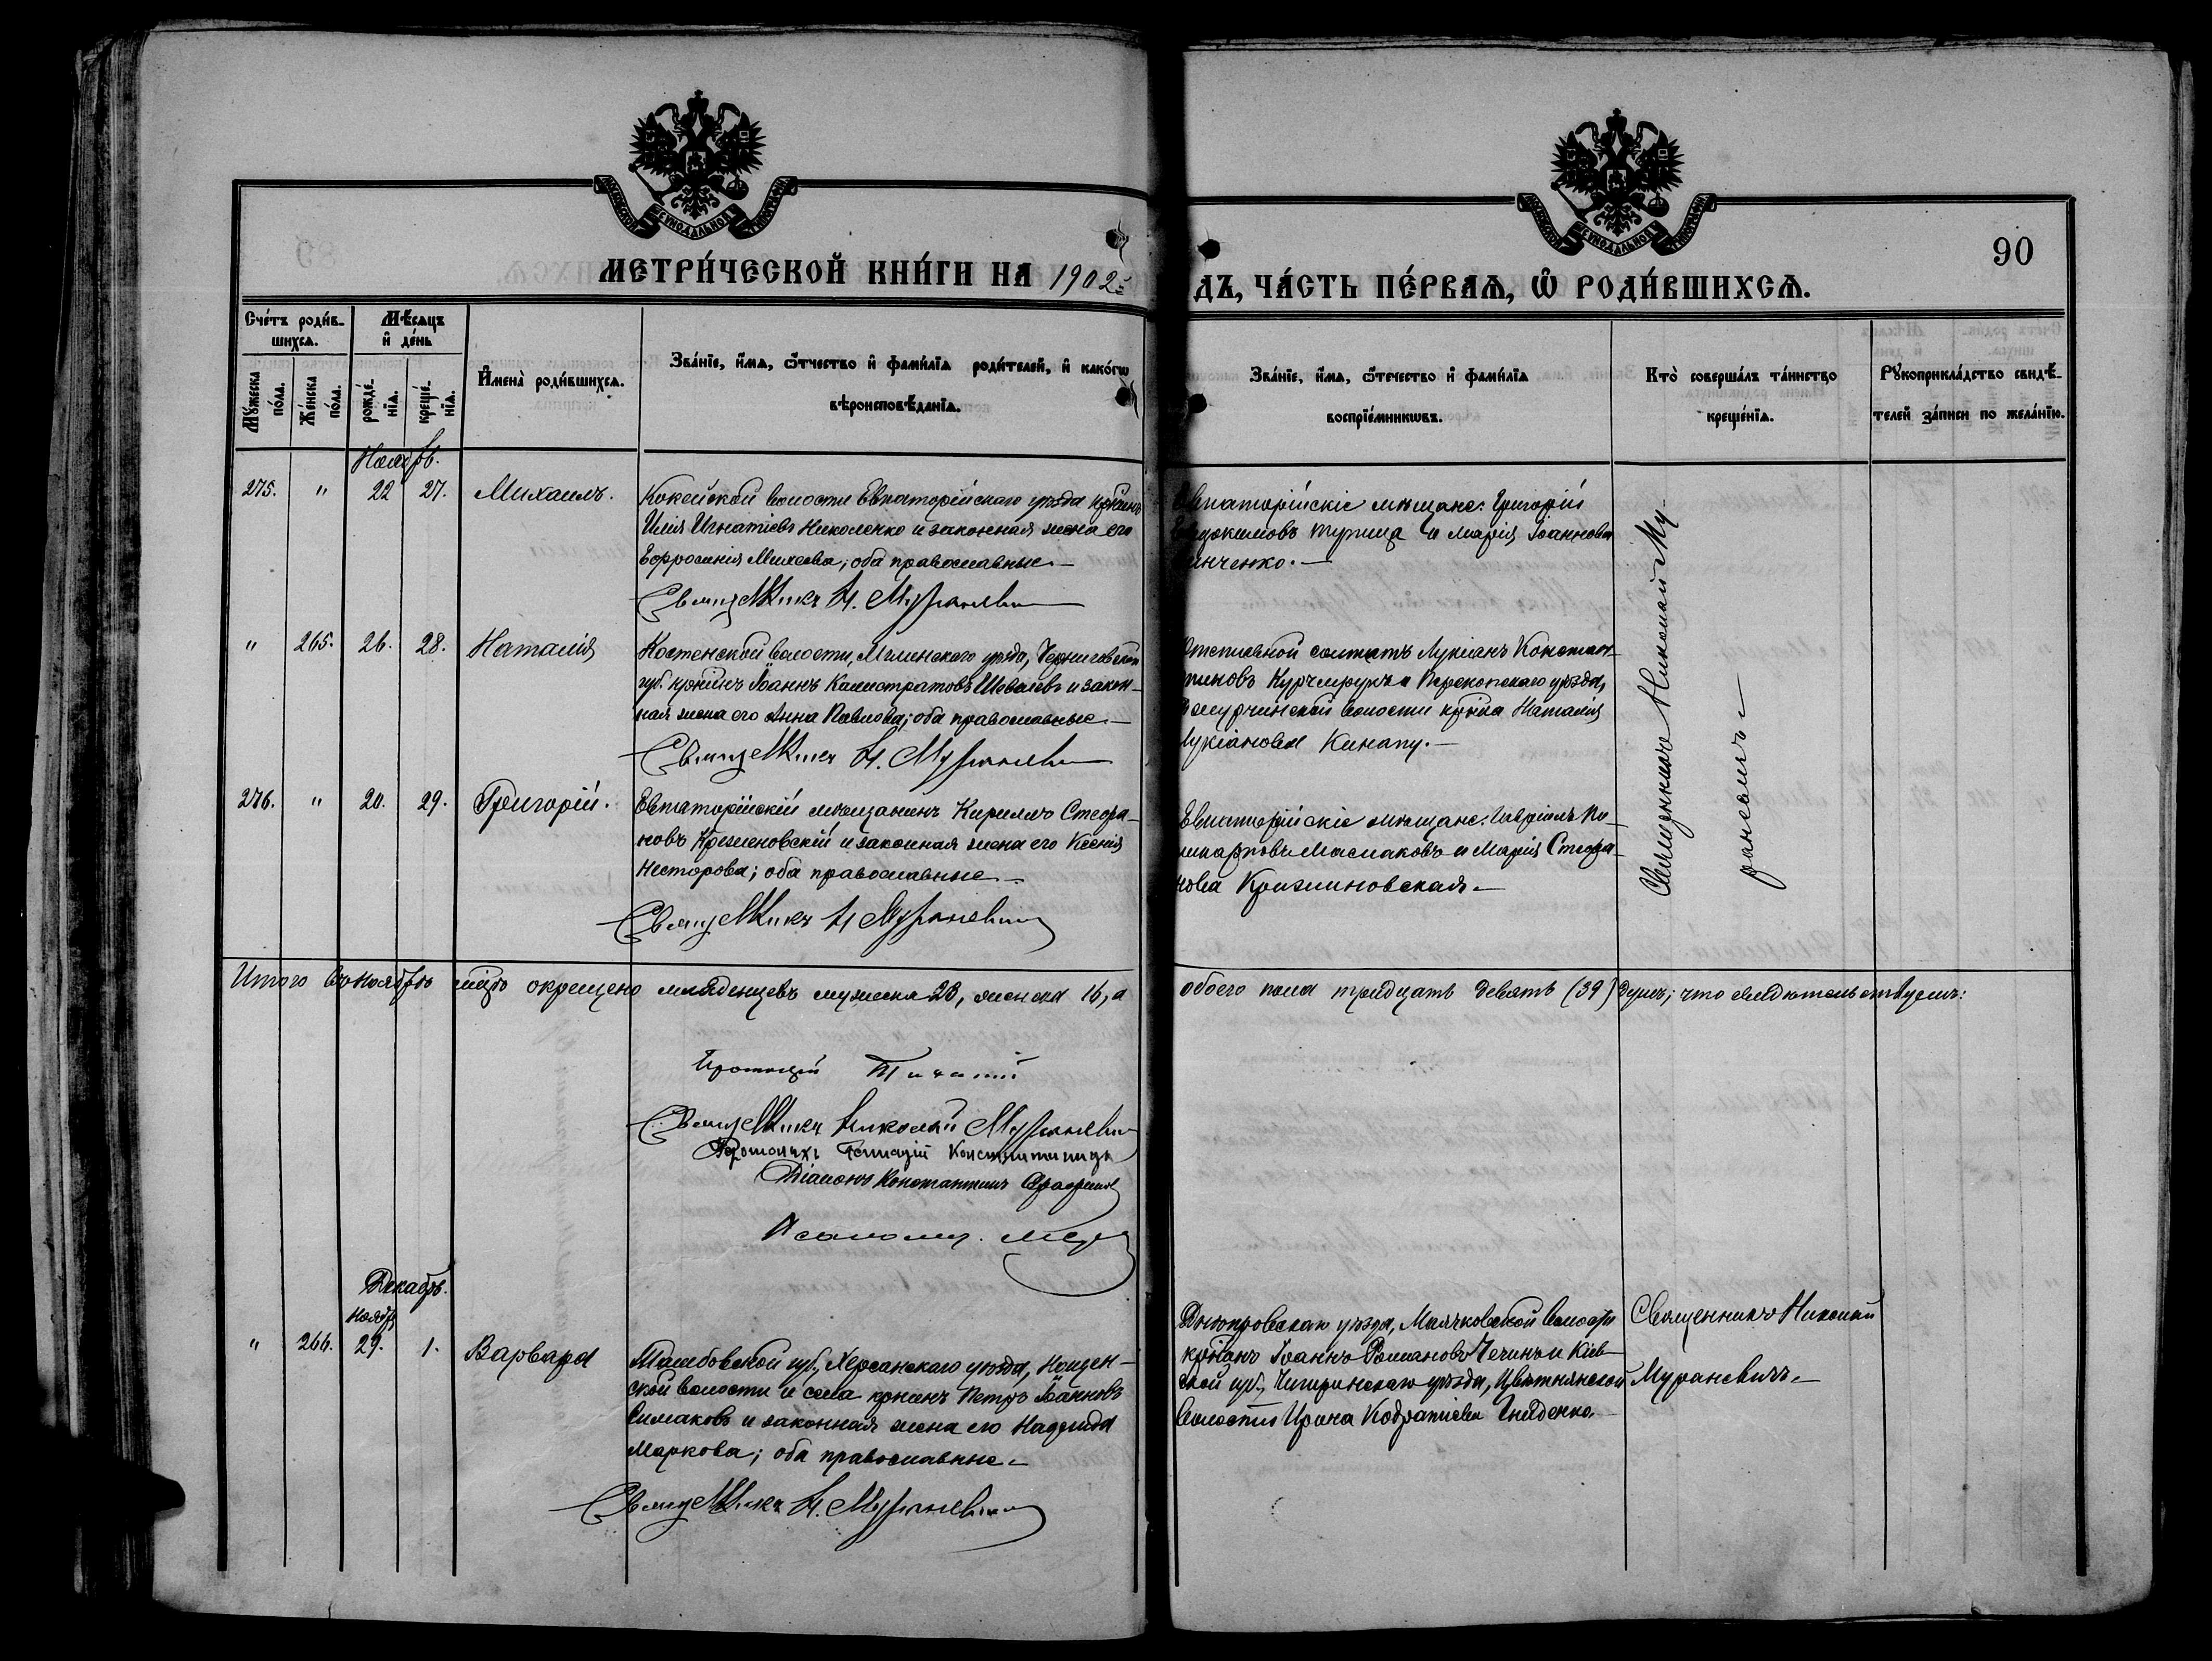 МЕТРИ́ЧЕСКОЙ КНИ́ГИ НА 1902
ДЪ, ЧА́СТЬ ПЕ́РВАѦ, Ѡ РОДИ́ВШИХСѦ.
90
Сче́тъ роди́в-
шихсѧ.
Мꙋ́жеска по́ла.
Же́нска по́ла.
Мѣ́сѧцъ
и де́нь
рожде́нїѧ.
креще́нїѧ.
Имена̀ роди́вшихсѧ.
Зва́нїе, и́мѧ, ѻ́тчество и фами́лїѧ роди́телей, и како́гѡ
вѣроисповѣ́данїѧ.
Зва́нїе, и́мѧ, ѻ́течество и фами́лїѧ
воспрїе́мникѡвъ.
Кто̀ соверша́лъ та́инство
креще́нїѧ.
Рꙋкоприкла́дство свидѣ́-
телей за́писи по жела́нїю.
Ноябрь.
275. " 22 27. Михаилъ.
Кокейской волости Евпаторійскаго уѣзда кр-нинъ
Илія Игнатіевъ Николенко и законная жена его
Евфросинія Михеева; оба православные.—
Священникъ Н. Мураневичъ
Евпаторійскіе мѣщане: Григорій
Евдокимовъ Турица и Марія Іоаннова
нченко.—
Священникъ Николай Му-
раневичъ—
" 265. 26. 28. Наталія
Костенской волости, Мглинскаго уѣзда, Черниговской
губ. кр-нинъ Іоаннъ Калистратовъ Шевалевъ и закон-
ная жена его Анна Павлова; оба православные.—
Священникъ Н. Мураневичъ
Отставной солдатъ Лукіанъ Констан-
тиновъ и Перекопскаго уѣзда,
волости Наталія
Лукіанова Кинапу.—
276. " 20. 29. Григорій.
Евпаторійскій мѣщанинъ Кириллъ Стефа-
новъ Криженовскій и законная жена его Ксенія
Несторова; оба православные.—
Священникъ Н Мураневичъ
Евпаторійскіе мѣщане: Гавріилъ По-
ликарповъ Маслаковъ и Марія Стефа-
нова Крижановская.—
Итого въ ноябрѣ м-цѣ окрещено младенцевъ мужска 23, женска 16, а
обоего пола тридцать девять (39) душъ; что свидѣтельствуемъ:
Протоіерей
Священникъ Николай Мураневичъ
Діаконъ Константинъ
Псаломщ.
Декабрь.
Ноябр
" 266. 29. 1. Варвара
Тамбовской губ., уѣзда,
ской волости и села кр-нинъ Петръ Іоанновъ
Симаковъ и законная жена его Надежда
Маркова; оба православные.—
Священникъ Н. Мураневичъ
Днѣпровскаго уѣзда, Маячковской волости
Іоаннъ Романовъ и Кіев-
ской губ., Чигиринскаго уѣзда, Цвѣтнянской
волости Ирина Гниденко.
Священникъ Николай
Мураневичъ.—